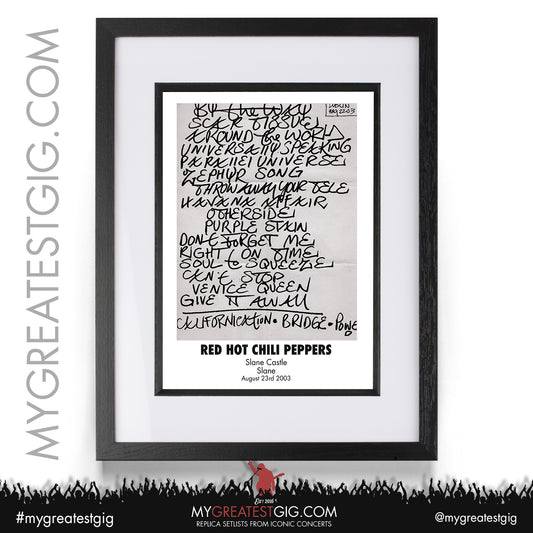 MYGREATESTGIG.COM
BY the WAY
DUBLIN
SCAR TISSUE
AROUND the WORLD
UNIVERSALLY SPEAKING
PARALLEL UNIVERSE
ZEPHYR SONG
THROW AWAY YOUR TELE
HAVANA AFFAIR
OTHERSIDE
PURPLE STAIN
DON'T FORGET ME
RIGHT ON TIME
SOUL to SQUEEZE
CAN'T STOP
VENICE QUEEN
GIVE IT AWAY
CALIFORNICATION • BRIDGE • POWE
RED HOT CHILI PEPPERS
Slane Castle
Slane
August 23rd 2003
EST 2016
#mygreatestgig
MYGREATESTGIG.COM
REPLICA SETLISTS FROM ICONIC CONCERTS
@mygreatestgig